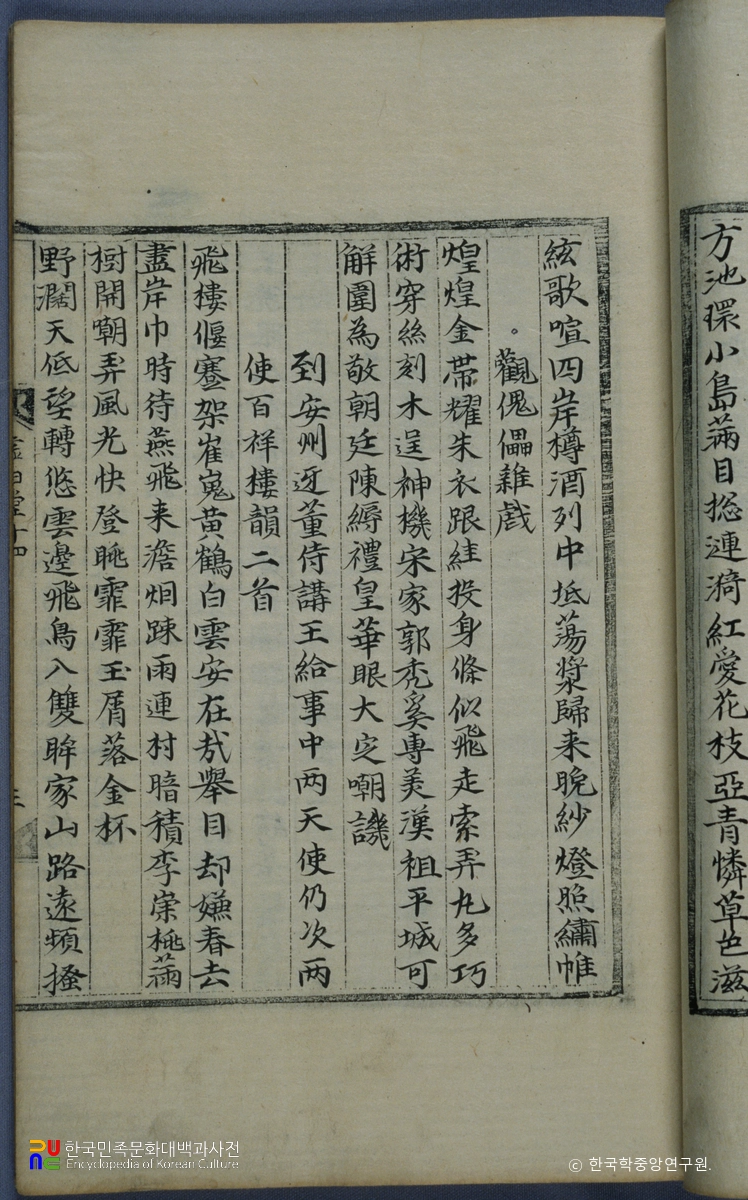 方池環小島滿目捴連漪紅愛花枝亞青憐草色滋
絃歌喧四岸樽酒列中坻蕩漿歸来晩紗燈照繡帷
觀傀儡雜戱
煌煌金帶耀朱衣跟絓投身條似飛走索弄丸多巧
術穿絲刻木逞神機宋家郭禿奚專美漢祖平城可
解圍為敬朝廷陳縟禮皇華眼大定嘲譏
到安州迓董侍講王給事中两天使仍次两
使百祥樓韻二首
飛樓偃蹇架崔嵬黃鶴白雲安在㦲擧目却嫌春去
盡岸巾時待燕飛来澹烟踈雨連村暗積李崇桃滿
樹開嘲弄風光快登眺霏霏玉屑落金杯
野濶天低望轉悠雲邊飛鳥入雙眸家山路遠頻搔
虛白堂十四
三
한국민족문화대백과사전
Encyclopedia of Korean Culture
© 한국학중앙연구원.